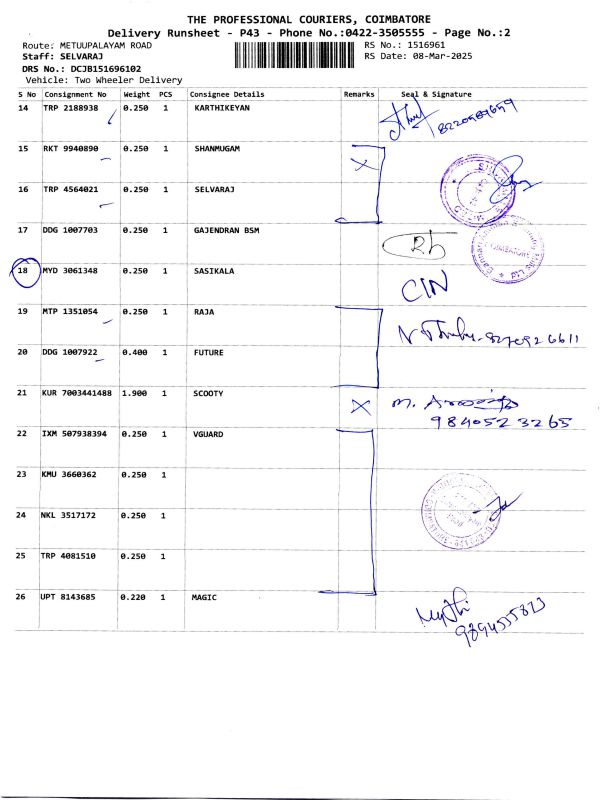 THE PROFESSIONAL COURIERS, COIMBATORE
Delivery Runsheet - P43 - Phone No.:0422-3505555 - Page No.:2
Route: METUUPALAYAM ROAD RS No.: 1516961
Staff: SELVARAJ RS Date: 08-Mar-2025
DRS No.: DCJB151696102
Vehicle: Two Wheeler Delivery
S No Consignment No Weight PCS Consignee Details Remarks Seal & Signature
14 TRP 2188938 0.250 1 KARTHIKEYAN
15 RKT 9940890 0.250 1 SHANMUGAM X
16 TRP 4564021 0.250 1 SELVARAJ
17 DDG 1007703 0.250 1 GAJENDRAN BSM
18 MYD 3061348 0.250 1 SASIKALA CIN
19 MTP 1351054 0.250 1 RAJA
20 DDG 1007922 0.400 1 FUTURE
21 KUR 7003441488 1.900 1 SCOOTY X M.
9840523265
22 IXM 507938394 0.250 1 VGUARD
23 KMU 3660362 0.250 1
24 NKL 3517172 0.250 1
25 TRP 4081510 0.250 1
26 UPT 8143685 0.220 1 MAGIC